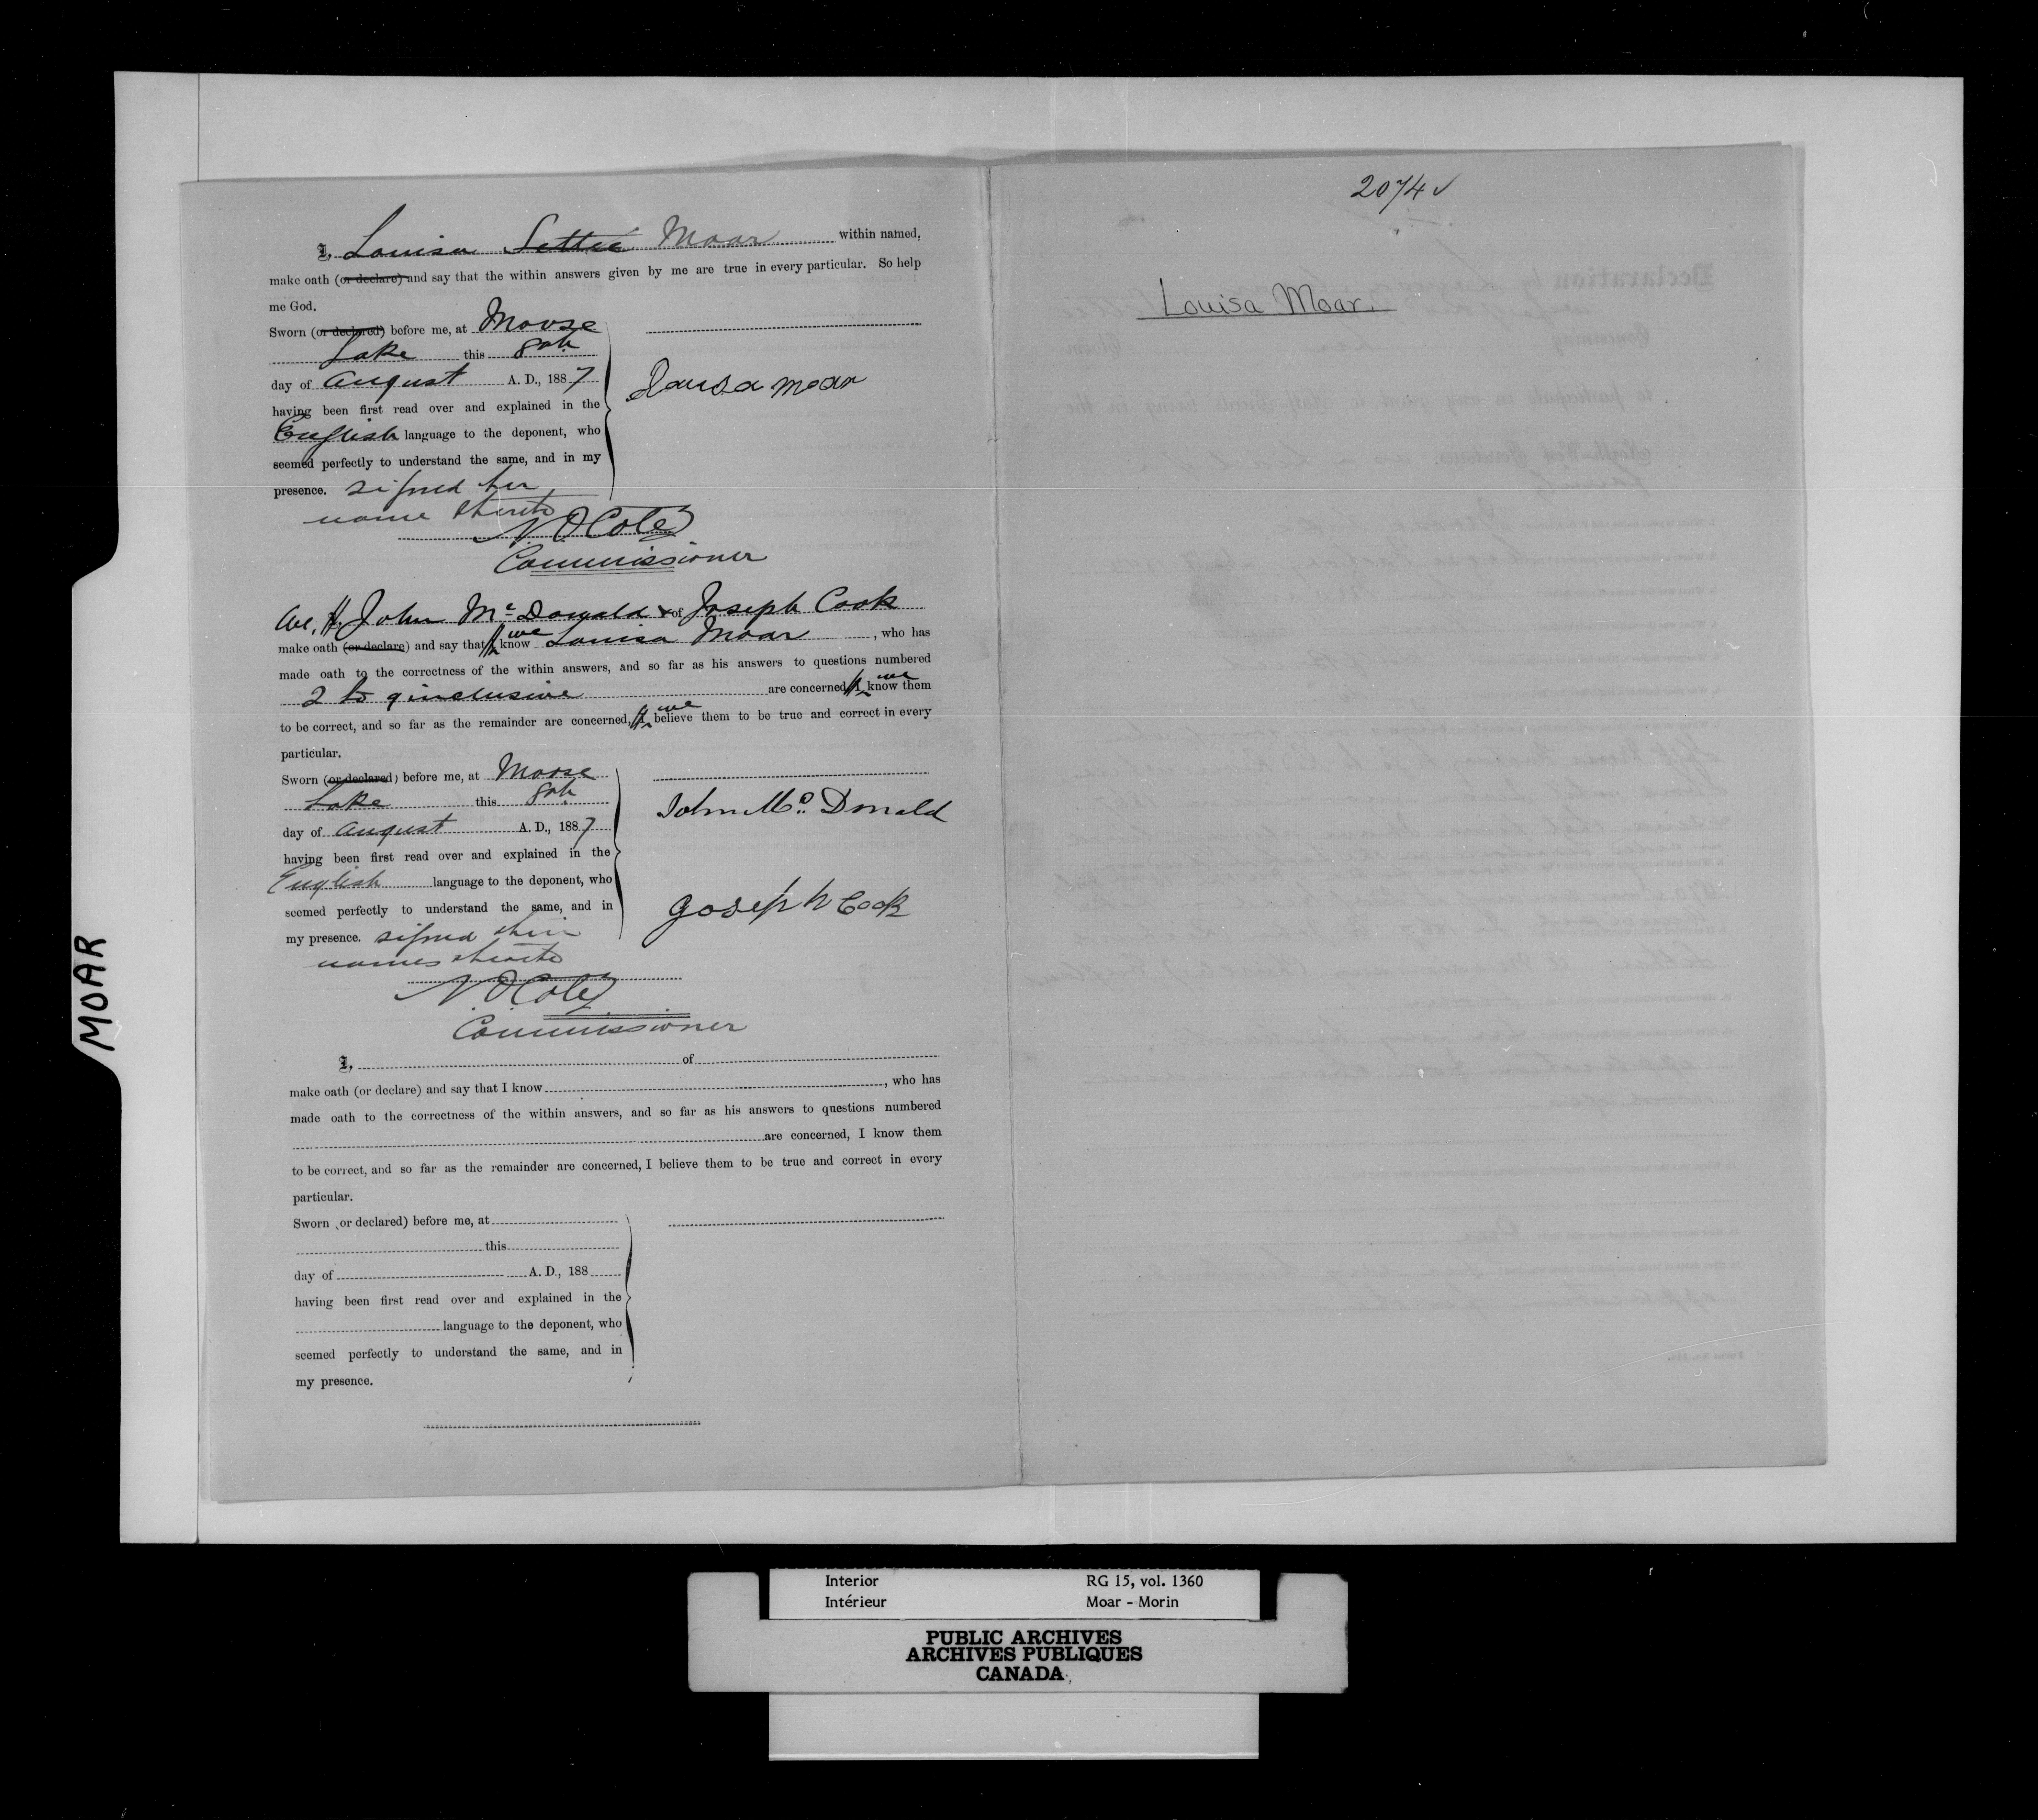 I, Louisa Settee Moar within named,
make oath (or declare) and say that the within answers given by me are true in every particular. So help
me God.
Sworn (or declared) before me, at Moose
Lake this 8th
day of August A. D., 1887
having been first read over and explained in the
English language to the deponent, who
seemed perfectly to understand the same, and in my
presence. signed her
name thereto
Louisa Moar
N. O. Coté
Commissioner
We, I, John McDonald & of Joseph Cook
make oath (or declare) and say that I we know Louisa Moar, who has
made oath to the correctness of the within answers, and so far as his answers to questions numbered
2 to 9 inclusive are concerned, I we know them
to be correct, and so far as the remainder are concerned, I we believe them to be true and correct in every
particular.
Sworn (or declared) before me, at Moose
Lake this 8th
day of August A. D., 1887
having been first read over and explained in the
English language to the deponent, who
seemed perfectly to understand the same, and in
my presence. signed their
names thereto
John McDonald
Joseph Cook
N. O. Coté
Commissioner
I, of
make oath (or declare) and say that I know, who has
made oath to the correctness of the within answers, and so far as his answers to questions numbered
are concerned, I know them
to be correct, and so far as the remainder are concerned, I believe them to be true and correct in every
particular.
Sworn (or declared) before me, at
this
day of A. D., 188
having been first read over and explained in the
language to the deponent, who
seemed perfectly to understand the same, and in
my presence.
2074 ✓
Louisa Moar.
MOAR
Interior RG 15, vol. 1360
Intérieur Moar - Morin
PUBLIC ARCHIVES
ARCHIVES PUBLIQUES
CANADA